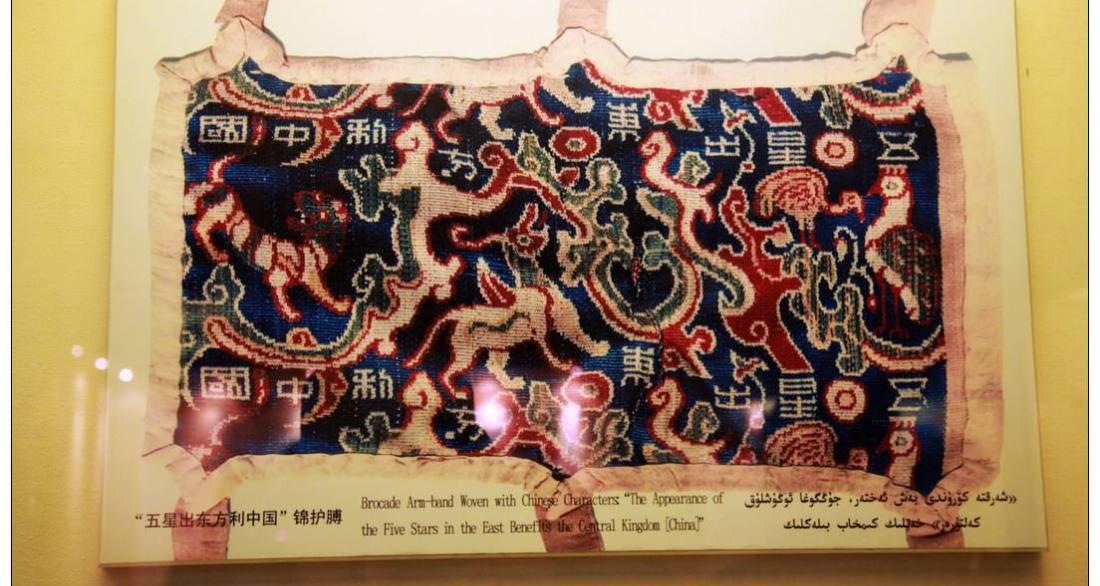 五星出東方利中國
五星出東方利中國
“五星出东方利中国”锦护膊
Brocade Arm-band Woven with Chinese Characters: “The Appearance of
the Five Stars in the East Benefits the Central Kingdom [China]”
«شەرقتە كۆرۈندى بەش ئەختەر، جۇڭگوغا ئوڭۇشلۇق
كەلتۈرەر» خەتلىك كىمخاب بىلەكلىك